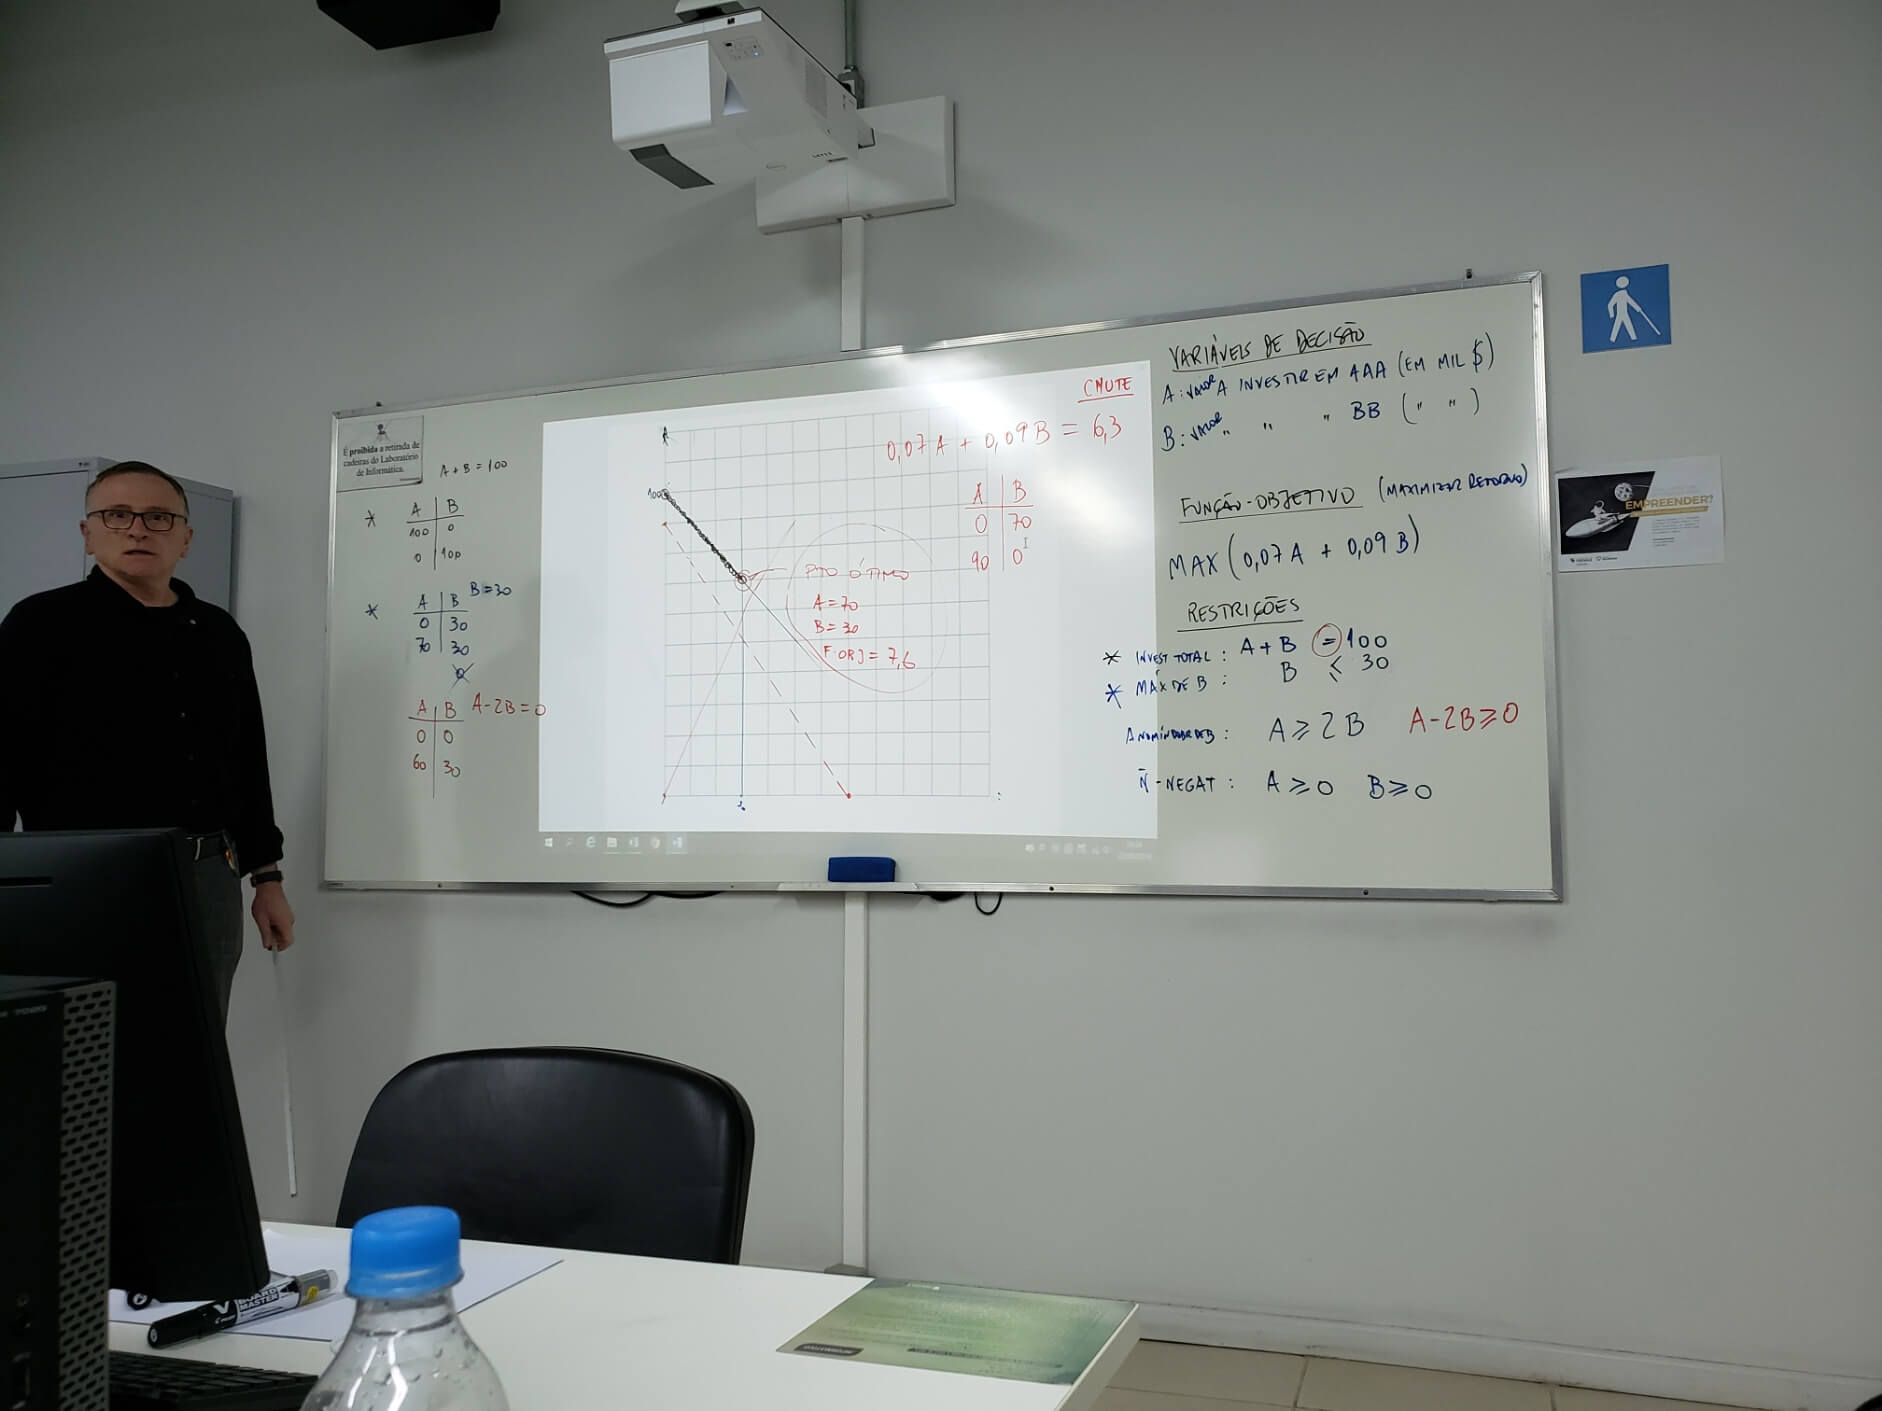 É proibida a retirada de
cadeiras do Laboratório
de Informática.
A + B = 100
* A B
100 0
0 100
B = 30
* A B
0 30
70 30
A B A - 2B = 0
0 0
60 30
A
100
CHUTE
0,07 A + 0,09 B = 6,3
A B
0 70
90 0
PTO ÓTIMO
A = 70
B = 30
F. OBJ = 7,6
VARIÁVEIS DE DECISÃO
A: VALOR A INVESTIR EM AAA (EM MIL $)
B: VALOR " " " BB ( " " )
FUNÇÃO-OBJETIVO (MAXIMIZAR RETORNO)
MAX (0,07 A + 0,09 B)
RESTRIÇÕES
* INVEST TOTAL : A + B = 100
* MÁX DE B : B ≤ 30
A ≥ 2B A - 2B ≥ 0
Ñ - NEGAT : A ≥ 0 B ≥ 0
EMPREENDER?
V BOARD
MASTER